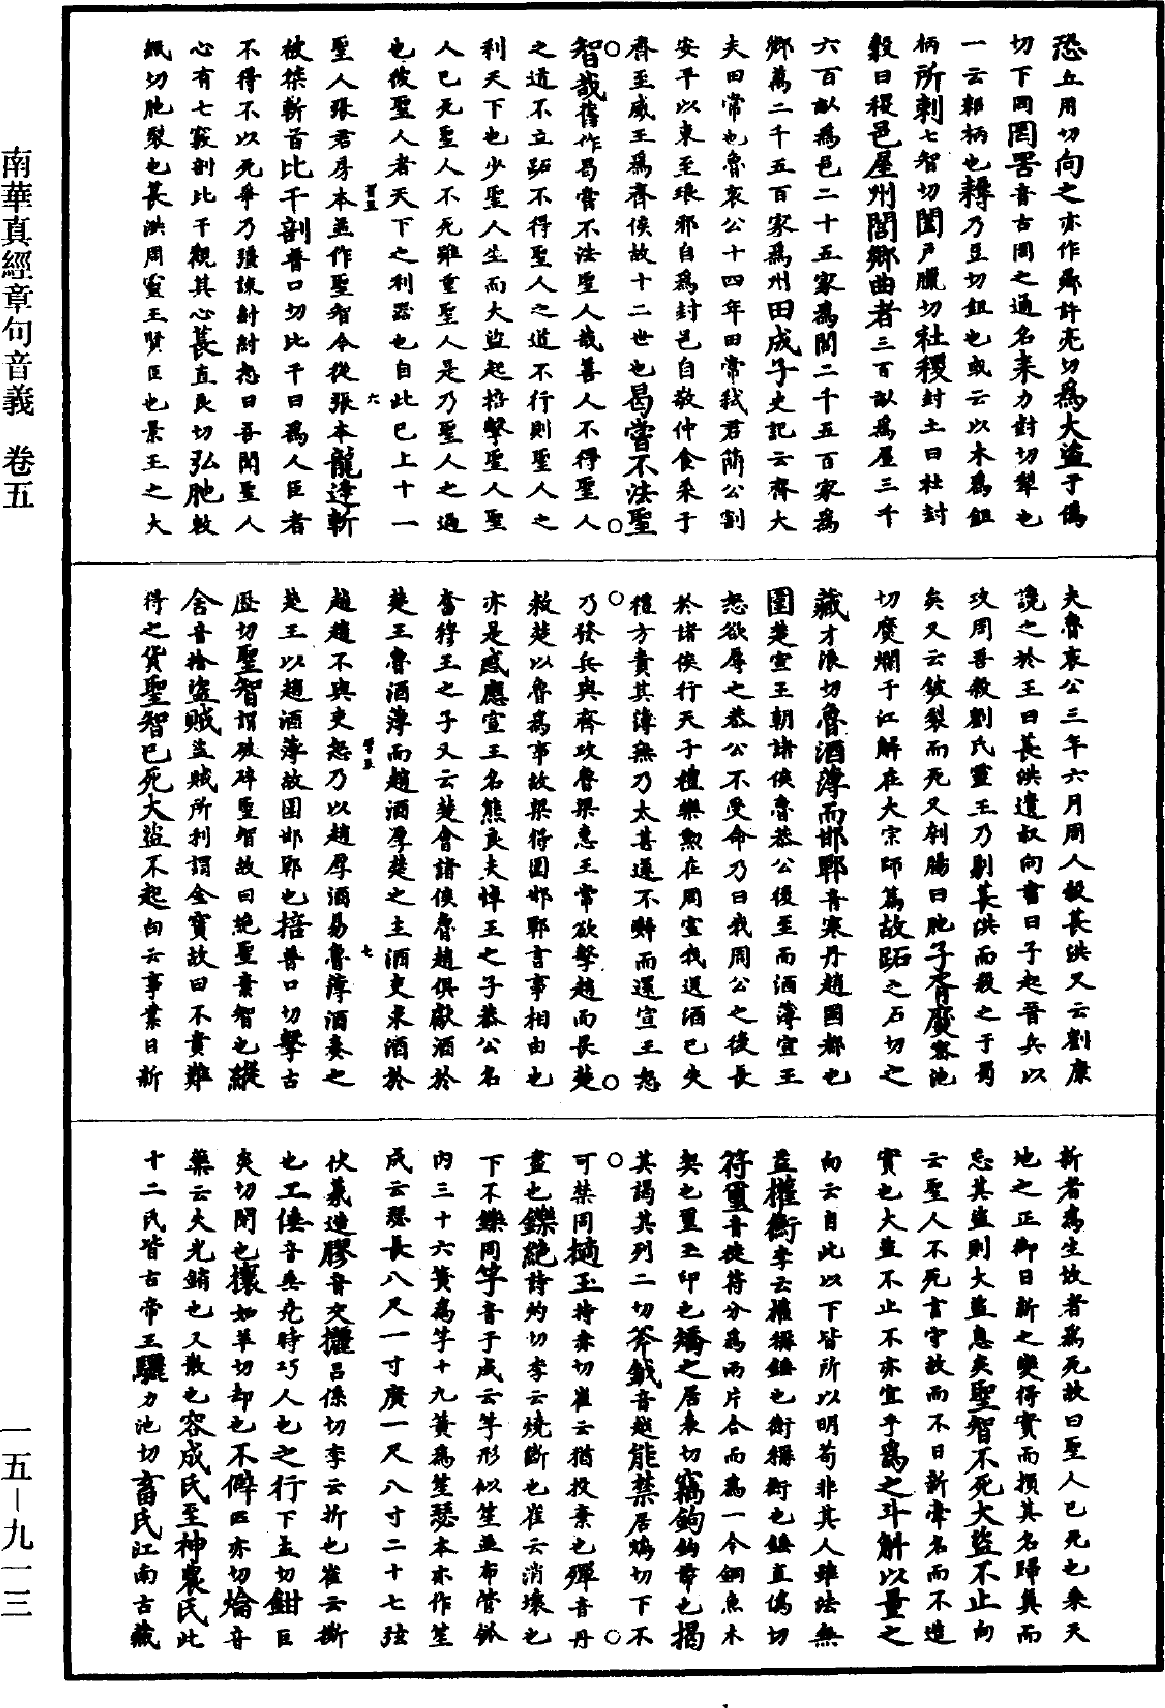 恐丘用切向之亦作鄉許亮切爲大盜于僞
切下同罔罟音古罔之通名耒力對切犂也
一云耜柄也耨乃豆切鉏也或云以木爲鉏
柄所刺七智切闔戶臘切社稷封土曰社封
穀曰稷邑屋州閭鄉曲者三百畝爲屋三千
六百畝爲邑二十五家爲閭二千五百家爲
鄉萬二千五百家爲州田成子史記云齊大
夫田常也魯哀公十四年田常弒君簡公割
安平以東至琅邪自爲封邑自敬仲食采于
齊至威王爲齊侯故十二世也曷嘗不法聖
智哉舊作曷嘗不法聖人哉善人不得聖人
之道不立跖不得聖人之道不行則聖人之
利天下也少聖人生而大盜起掊擊聖人聖
人已死聖人不死雖重聖人是乃聖人之過
也彼聖人者天下之利器也自此已上十一
聖人張君房本並作聖智今從張本龍逢斬
被桀斬首比干剖普口切比干曰爲人臣者
不得不以死爭乃強諫紂紂怒曰吾聞聖人
心有七竅剖比干觀其心萇直良切弘胣敕
紙切胣裂也萇洪周靈王賢臣也景王之大
夫魯哀公三年六月周人殺萇洪又云劉康
說之於王曰萇洪遺叔向書曰子起晉兵以
攻周吾殺劉氏靈王乃剔萇洪而殺之于蜀
矣又云鈹裂而死又刳腸曰胣子胥靡密池
切糜爛于江解在大宗師篇故跖之石切之
藏才浪切魯酒薄而邯鄲音寒丹趙國都也
圍楚宣王朝諸侯魯恭公後至而酒薄宣王
怒欲辱之恭公不受命乃曰我周公之後長
於諸侯行天子禮樂勳在周室我送酒已失
禮方責其薄無乃太甚遂不辭而還宣王怒
乃發兵與齊攻魯梁惠王常欲擊趙而畏楚
救楚以魯爲事故梁得圍邯鄲言事相由也
亦是感應宣王名熊良夫悼王之子恭公名
奮穆王之子又云楚會諸侯魯趙俱獻酒於
楚王魯酒薄而趙酒厚楚之主酒吏求酒於
趙趙不與吏怒乃以趙厚酒易魯薄酒奏之
楚王以趙酒薄故圍邯鄲也掊普口切擊古
歷切聖智謂破碎聖智故曰絕聖棄智也縱
舍音捨盜賊盜賊所利謂金寶故曰不貴難
得之貨聖智已死大盜不起向云事業日新
新者爲生故者爲死故曰聖人已死也乘天
地之正御日新之變得實而損其名歸眞而
忘其盜則大盜息矣聖智不死大盜不止向
云聖人不死言守故而不日新牽名而不造
實也大盜不止不亦宜乎爲之斗斛以量之
向云自此以下皆所以明苟非其人雖法無
益權衡李云權稱錘也衡稱衡也錘直僞切
符璽音徙符分爲兩片合而爲一今銅魚木
契也璽玉印也矯之居表切竊鉤鉤帶也揭
其謁其列二切斧鉞音越能禁居鴆切下不
可禁同擿玉持赤切崔云猶投棄也殫音丹
盡也鑠絕詩灼切李云燒斷也崔云消壞也
下不鑠同竽音于成云竽形似笙並布管鉩
內三十六簧爲竽十九簧爲笙瑟本亦作笙
成云瑟長八尺一寸廣一尺八寸二十七弦
伏羲造膠音交攦呂係切李云折也崔云撕
也工倕音垂堯時巧人也之行下孟切鉗巨
炎切閉也攘如羊切却也不僻匹亦切爚音
藥云大光銷也又散也容成氏至神農氏此
十二氏皆古帝王驪力池切畜氏江南古藏
督五
六
督五
七
南華真經章句音義　卷五
一五—九一三